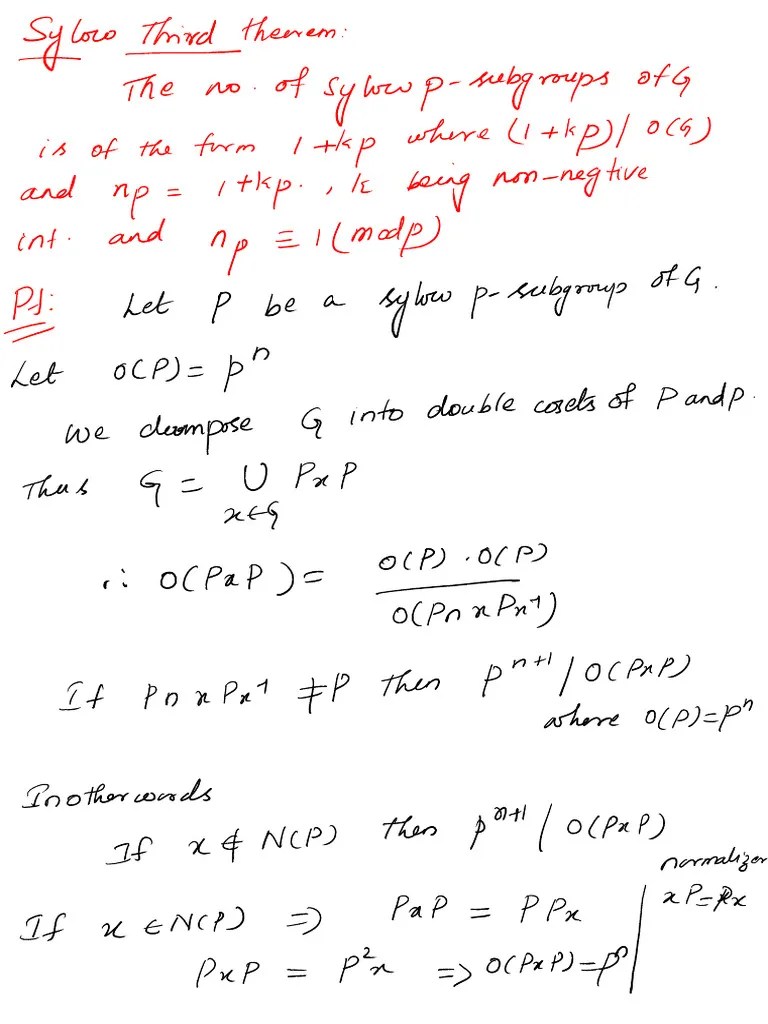 Sylow Third theorem:
The no. of sylow p-subgroups of G
is of the form 1+kp where (1+kp)/o(G)
and np = 1+kp. , k being non-negtive
int. and np ≡ 1(modp)
Pf: Let P be a sylow p-subgroup of G.
Let o(P) = p^n
We decompose G into double cosets of P and P.
Thus G = ∪ PxP
x∈G
∴ o(PxP) = o(P).o(P) / o(P∩xPx^-1)
If P∩xPx^-1 ≠ P then p^n+1 / o(PxP)
where o(P)=p^n
In other words
If x ∉ N(P) then p^n+1 / o(PxP)
If x ∈ N(P) ⇒ PxP = PPx
normalizer
xP=Px
PxP = P^2x ⇒ o(PxP)=p^n